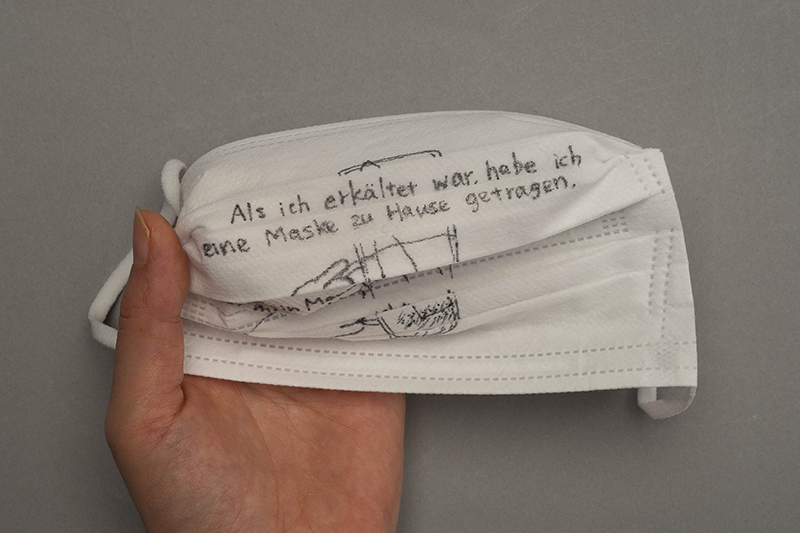 Als ich erkältet war, habe ich
eine Maske zu Hause getragen.